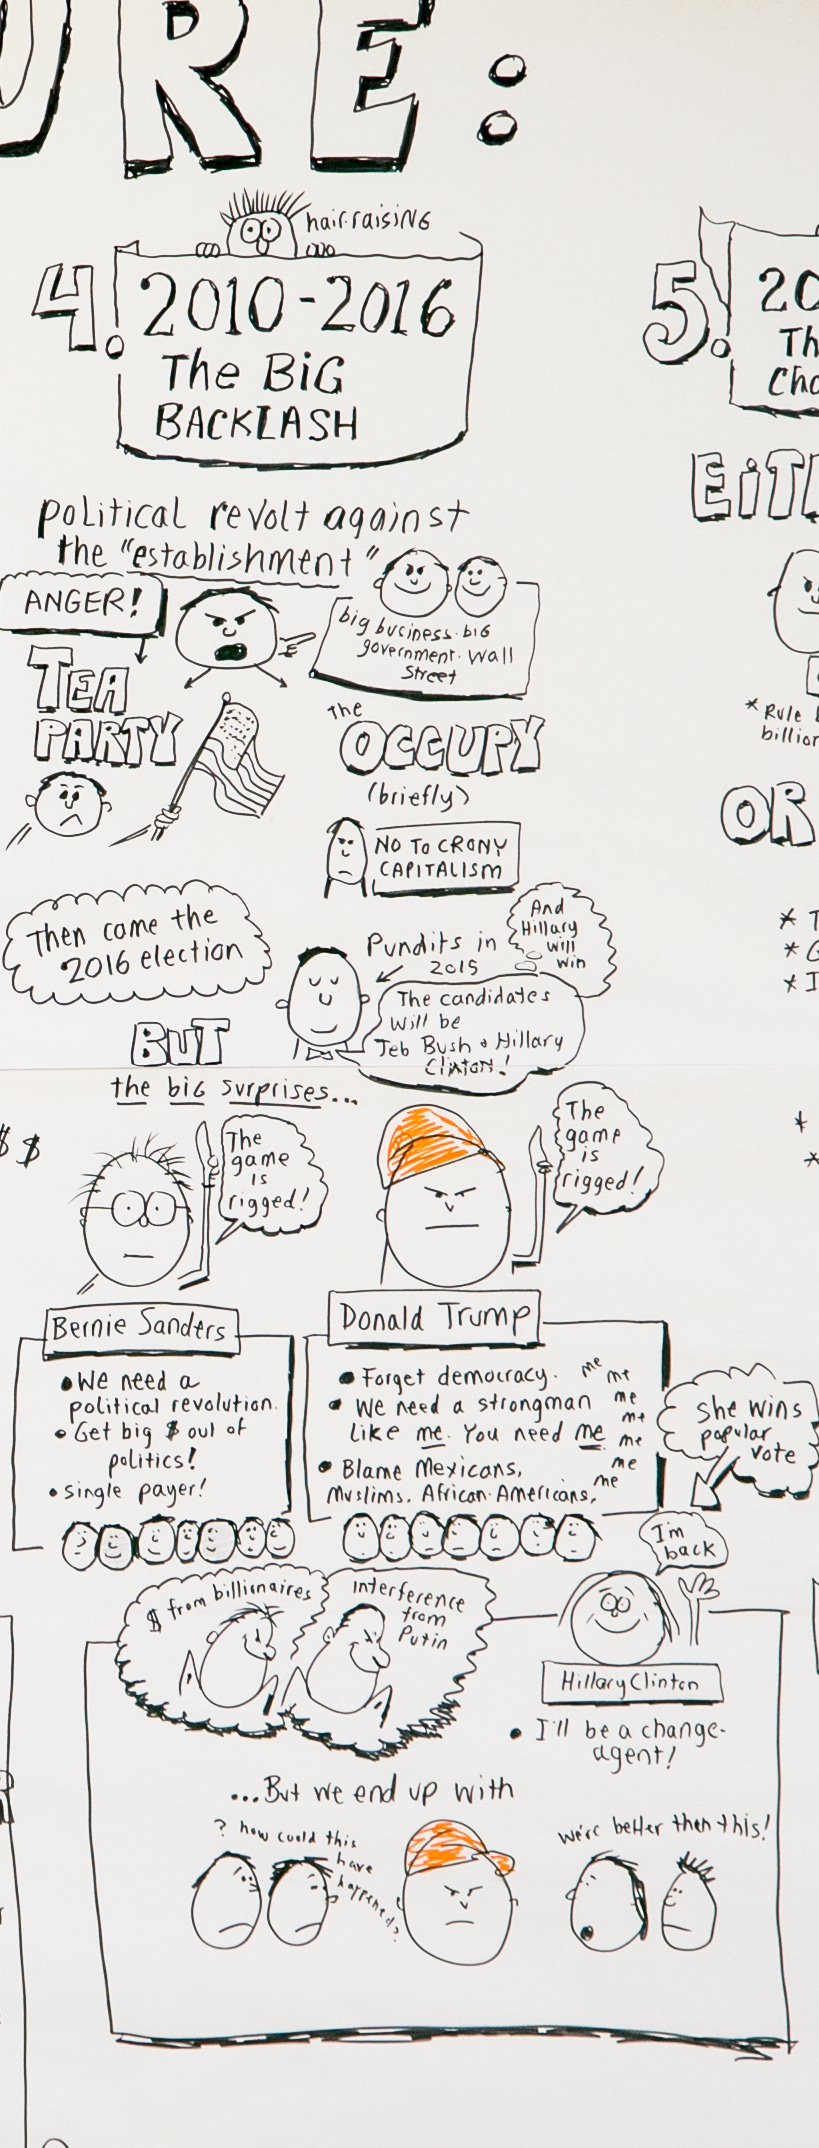 URE:
hair-raising
4. 2010-2016
The BiG
BACKLASH
political revolt against
the "establishment"
ANGER!
big business. big
government. Wall
Street
TEA
PARTY
The
OCCUPY
(briefly)
NO TO CRONY
CAPITALISM
Then came the
2016 election
Pundits in
2015
And
Hillary
will
win
The candidates
will be
Jeb Bush & Hillary
Clinton!
BUT
the big surprises...
The
game
is
rigged!
The
game
is
rigged!
Bernie Sanders
• We need a
political revolution.
• Get big $ out of
politics!
• Single payer!
Donald Trump
• Forget democracy.
• We need a strongman
like me. You need me
• Blame Mexicans,
Muslims, African-Americans,
me me
me
me
me
me
me
she wins
popular
vote
I'm
back
$ from billionaires
Interference
from
Putin
Hillary Clinton
• I'll be a change-
agent!
...But we end up with
? how could this
have
happened?
we're better than this!
5. 20
Th
Cha
EiTH
* Rule b
billion
OR
* T
* G
* I
*
*
$ $